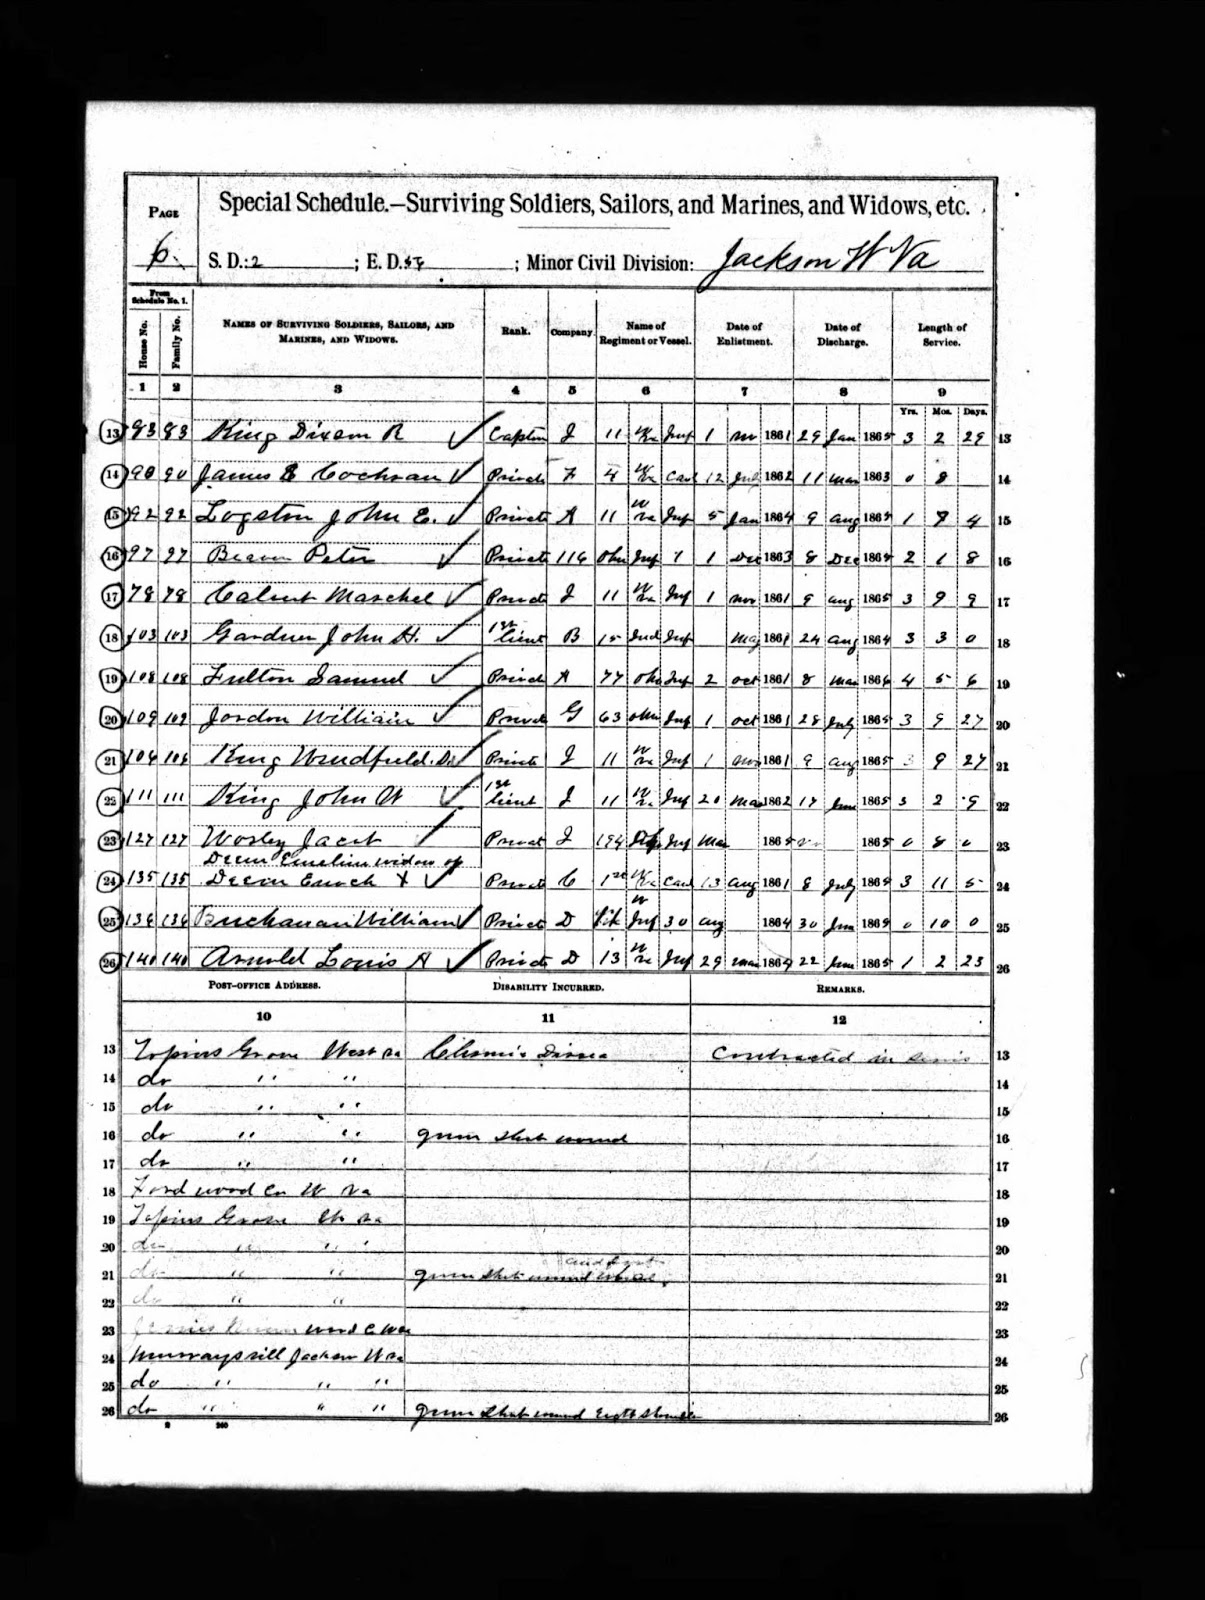 PAGE
6.
Special Schedule.—Surviving Soldiers, Sailors, and Marines, and Widows, etc.
S. D.: 2 ; E. D. ; Minor Civil Division: Jackson W Va
From Schedule No. 1.
House No.
Family No.
NAMES OF SURVIVING SOLDIERS, SAILORS, AND MARINES, AND WIDOWS.
Rank.
Company.
Name of Regiment or Vessel.
Date of Enlistment.
Date of Discharge.
Length of Service.
1 2 3 4 5 6 7 8 9
Yrs. Mos. Days.
13 83 83 King Dixon R Captin J 11 W Va Inf 1 nov 1861 29 Jan 1865 3 2 29 13
14 90 90 James E Cochran Private F 4 W Va Cav 12 July 1862 11 mar 1863 0 8 14
15 92 92 Logston John E. Private A 11 W Va Inf 5 Jan 1864 9 aug 1865 1 8 4 15
16 97 97 Peter Private 116 Ohio Inf 1 1 Dec 1863 8 Dec 2 1 8 16
17 78 78 Calvert Marshel Private J 11 W Va Inf 1 nov 1861 9 aug 1865 3 9 9 17
18 103 103 Gardner John H. 1st Lieut B 15 Ind Inf May 1861 24 aug 1864 3 3 0 18
19 108 108 Fulton Samuel Private A 77 Ohio Inf 2 oct 1861 8 mar 1866 4 5 6 19
20 109 109 Jordon William Private G 63 ohio Inf 1 oct 1861 28 July 1865 3 9 27 20
21 106 106 King Private J 11 W Va Inf 1 nov 1861 9 aug 1865 3 9 27 21
22 111 111 King John W 1st Lieut J 11 W Va Inf 20 Mar 1862 17 June 1865 3 2 9 22
23 127 127 Jacob Privat J 194 Inf Mar 1865 1865 0 8 0 23
Deem Emeline widow of
24 135 135 Deem Enoch X Private C 1st W Va Cav 13 aug 1861 8 July 1865 3 11 5 24
25 136 136 Buchanan William Private D W Inf 30 aug 1864 30 Jun 1865 0 10 0 25
26 140 140 Arnold Louis A Private D 13 W Va Inf 29 mar 1864 22 June 1865 1 2 23 26
POST-OFFICE ADDRESS. DISABILITY INCURRED. REMARKS.
10 11 12
13 Topins Grove West Va Chronic Contracted in 13
14 do " " 14
15 do " " 15
16 do " " gun shot wound 16
17 do " " 17
18 Ford wood Co W Va 18
19 Topins Grove W Va 19
20 do " " 20
21 do " " gun shot wound 21
22 do " " 22
23 wood C 23
24 Murraysvill Jackson W Va 24
25 do " " " 25
26 do " " " gun shot wound 26